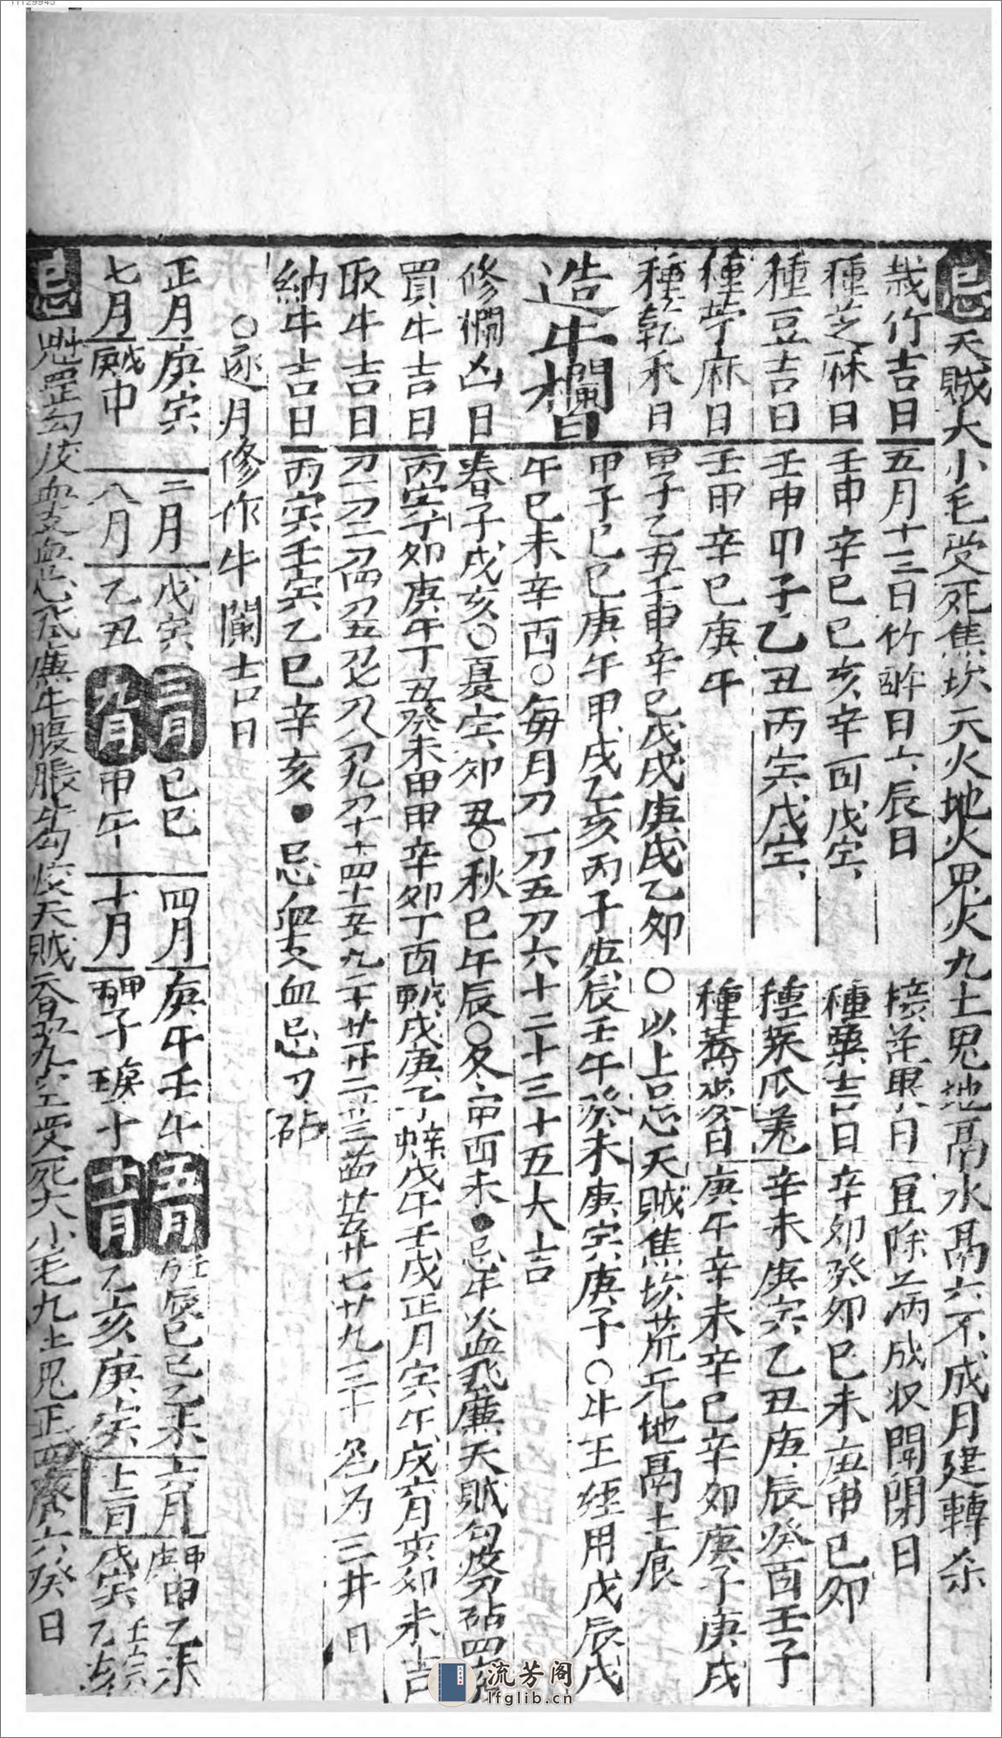 11129945
忌天賊大小毛受死焦坎天火地火鬼火九土鬼地鬲水鬲六不成月建轉杀
栽竹吉日 五月十三日竹醉日六辰日 接花果日 宜除満成收開閉日
種芝麻日 壬申辛巳己亥辛酉戊寅 種粟吉日 辛卯癸卯己未庚申己卯
種豆吉日 壬申甲子乙丑丙寅戊寅 種菜瓜 辛未庚寅乙丑庚辰癸酉壬子
種苧麻日 壬申辛巳庚午 種蕎麥日 庚午辛未辛巳辛卯庚子庚戌
種乾禾日 甲子乙丑壬申辛巳戊戌庚戌乙卯〇以上忌天賊焦坎荒元地鬲土痕
造牛欄日 甲子己巳庚午甲戌乙亥丙子庚辰壬午癸未庚寅庚子〇牛王經用戊辰戊
午巳未辛酉〇每月初一初五初六十二十三十五大吉
修欄凶日 春子戌亥〇夏寅卯丑〇秋巳午辰〇冬申酉未●忌牛火血飛廉天賊勾絞刀砧四
買牛吉日 丙寅 卯庚午丁丑癸未甲申辛卯丁酉戊戌庚子 戊午壬戌正月寅午戌六月亥卯未吉
取牛吉日 初一初二初四初五初七初八初九初十十四十五十九二十 廿二廿三 廿五 廿七廿九三十名为三井日
納牛吉日 丙寅壬寅乙巳辛亥●忌 血忌刀砧
〇逐月修作牛闌吉日
正月庚寅 二月戊寅 三月己巳 四月庚午壬午 五月 己巳乙未 六月 甲申乙未
七月 申 八月乙丑 九月甲午 十月 子 十一月乙亥庚寅 十二月戊寅 乙亥
忌魁罡勾絞血支血忌飛廉牛腹脹牛勾絞天賊 九空受死大小毛九土鬼正四廢六癸日
流芳阁
lfglib.cn